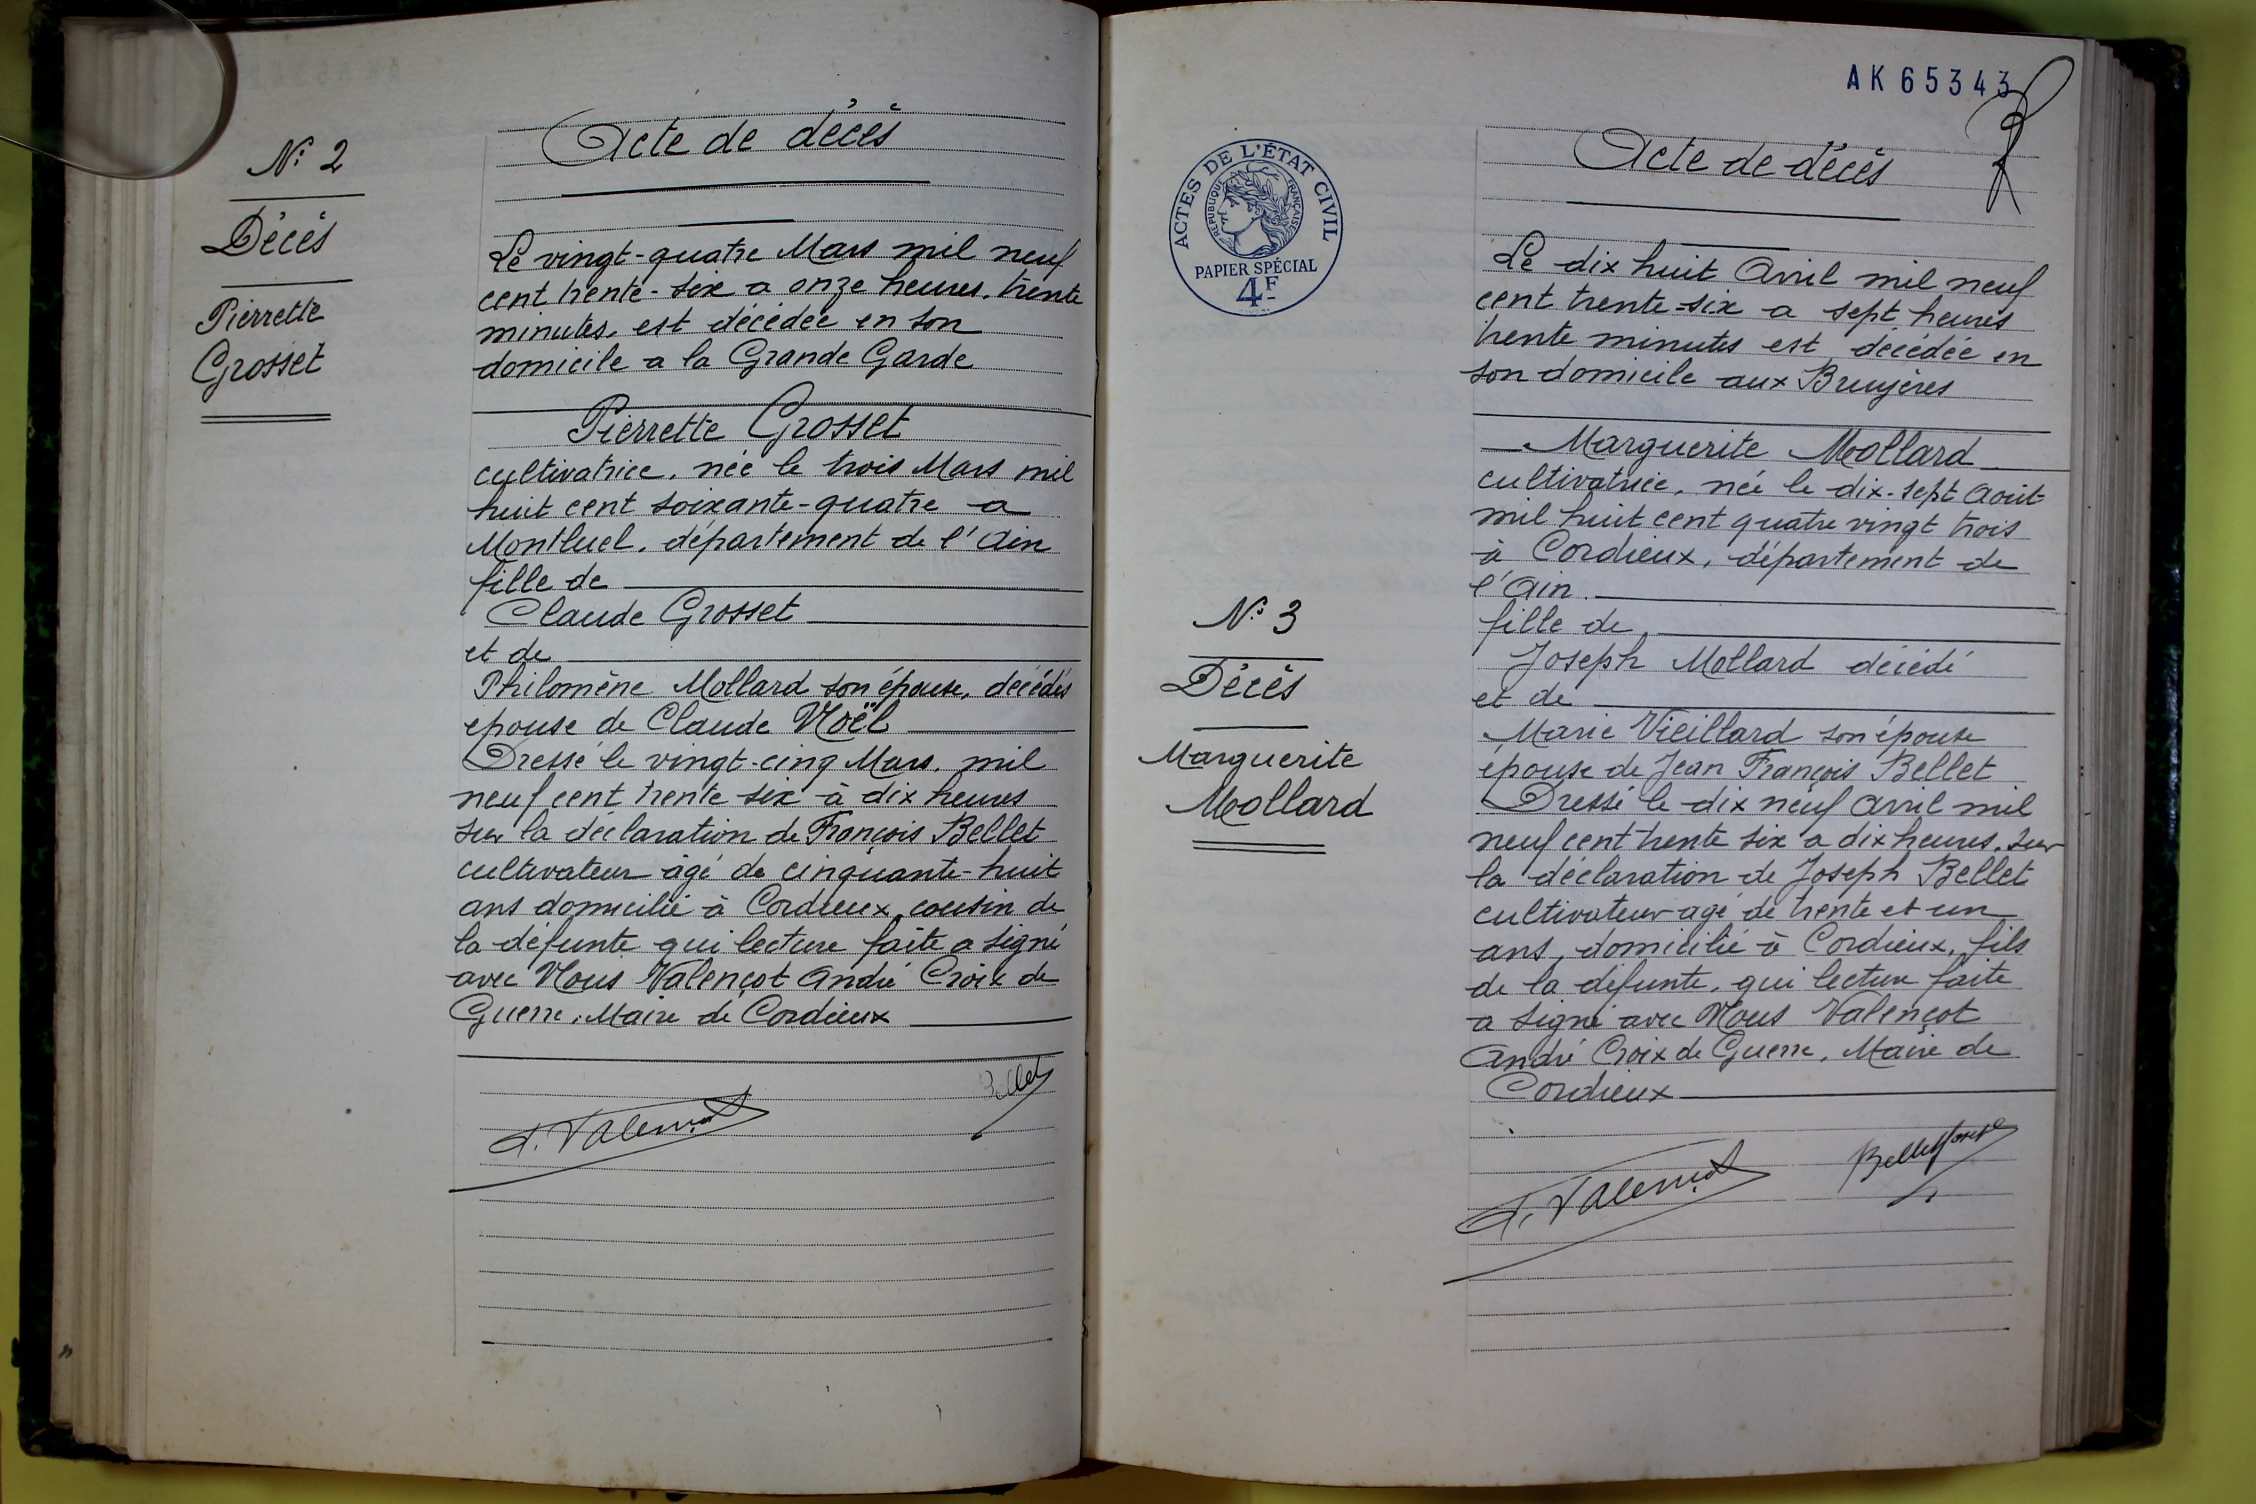 N: 2
Décès
Pierrette
Grosset
Acte de décès
Le vingt-quatre Mars mil neuf
cent trente-six a onze heures, trente
minutes, est décédée en son
domicile a la Grande Garde
Pierrette Grosset
cultivatrice, née le trois Mars mil
huit cent soixante-quatre a
Montluel, département de l'Ain
fille de
Claude Grosset
et de
Philomène Mollard son épouse, décédés
epouse de Claude Noël
Dressé le vingt-cinq Mars, mil
neuf cent trente six à dix heures
sur la déclaration de François Bellet
cultivateur âgé de cinquante-huit
ans domicilié à Cordieux, cousin de
la défunte qui lecture faite a signé
avec Nous Valençot André Croix de
Guerre, Maire de Cordieux
A. Valençot
Bellet
AK 65343
ACTES DE L'ÉTAT CIVIL
RÉPUBLIQUE FRANÇAISE
PAPIER SPÉCIAL
4F
N: 3
Décès
Marguerite
Mollard
Acte de décès
Le dix huit Avril mil neuf
cent trente-six a sept heures
trente minutes est décédée en
son domicile aux Bruyères
Marguerite Mollard
cultivatrice, née le dix-sept Août
mil huit cent quatre vingt trois
à Cordieux, département de
l'Ain.
fille de
Joseph Mollard décédé
et de
Marie Vieillard son épouse
épouse de Jean François Bellet
Dressé le dix neuf Avril mil
neuf cent trente six a dix heures, sur
la déclaration de Joseph Bellet
cultivateur agé de trente et un
ans, domicilié à Cordieux, fils
de la défunte, qui lecture faite
a signé avec Nous Valençot
André Croix de Guerre, Maire de
Cordieux
A. Valençot
Bellet Joseph